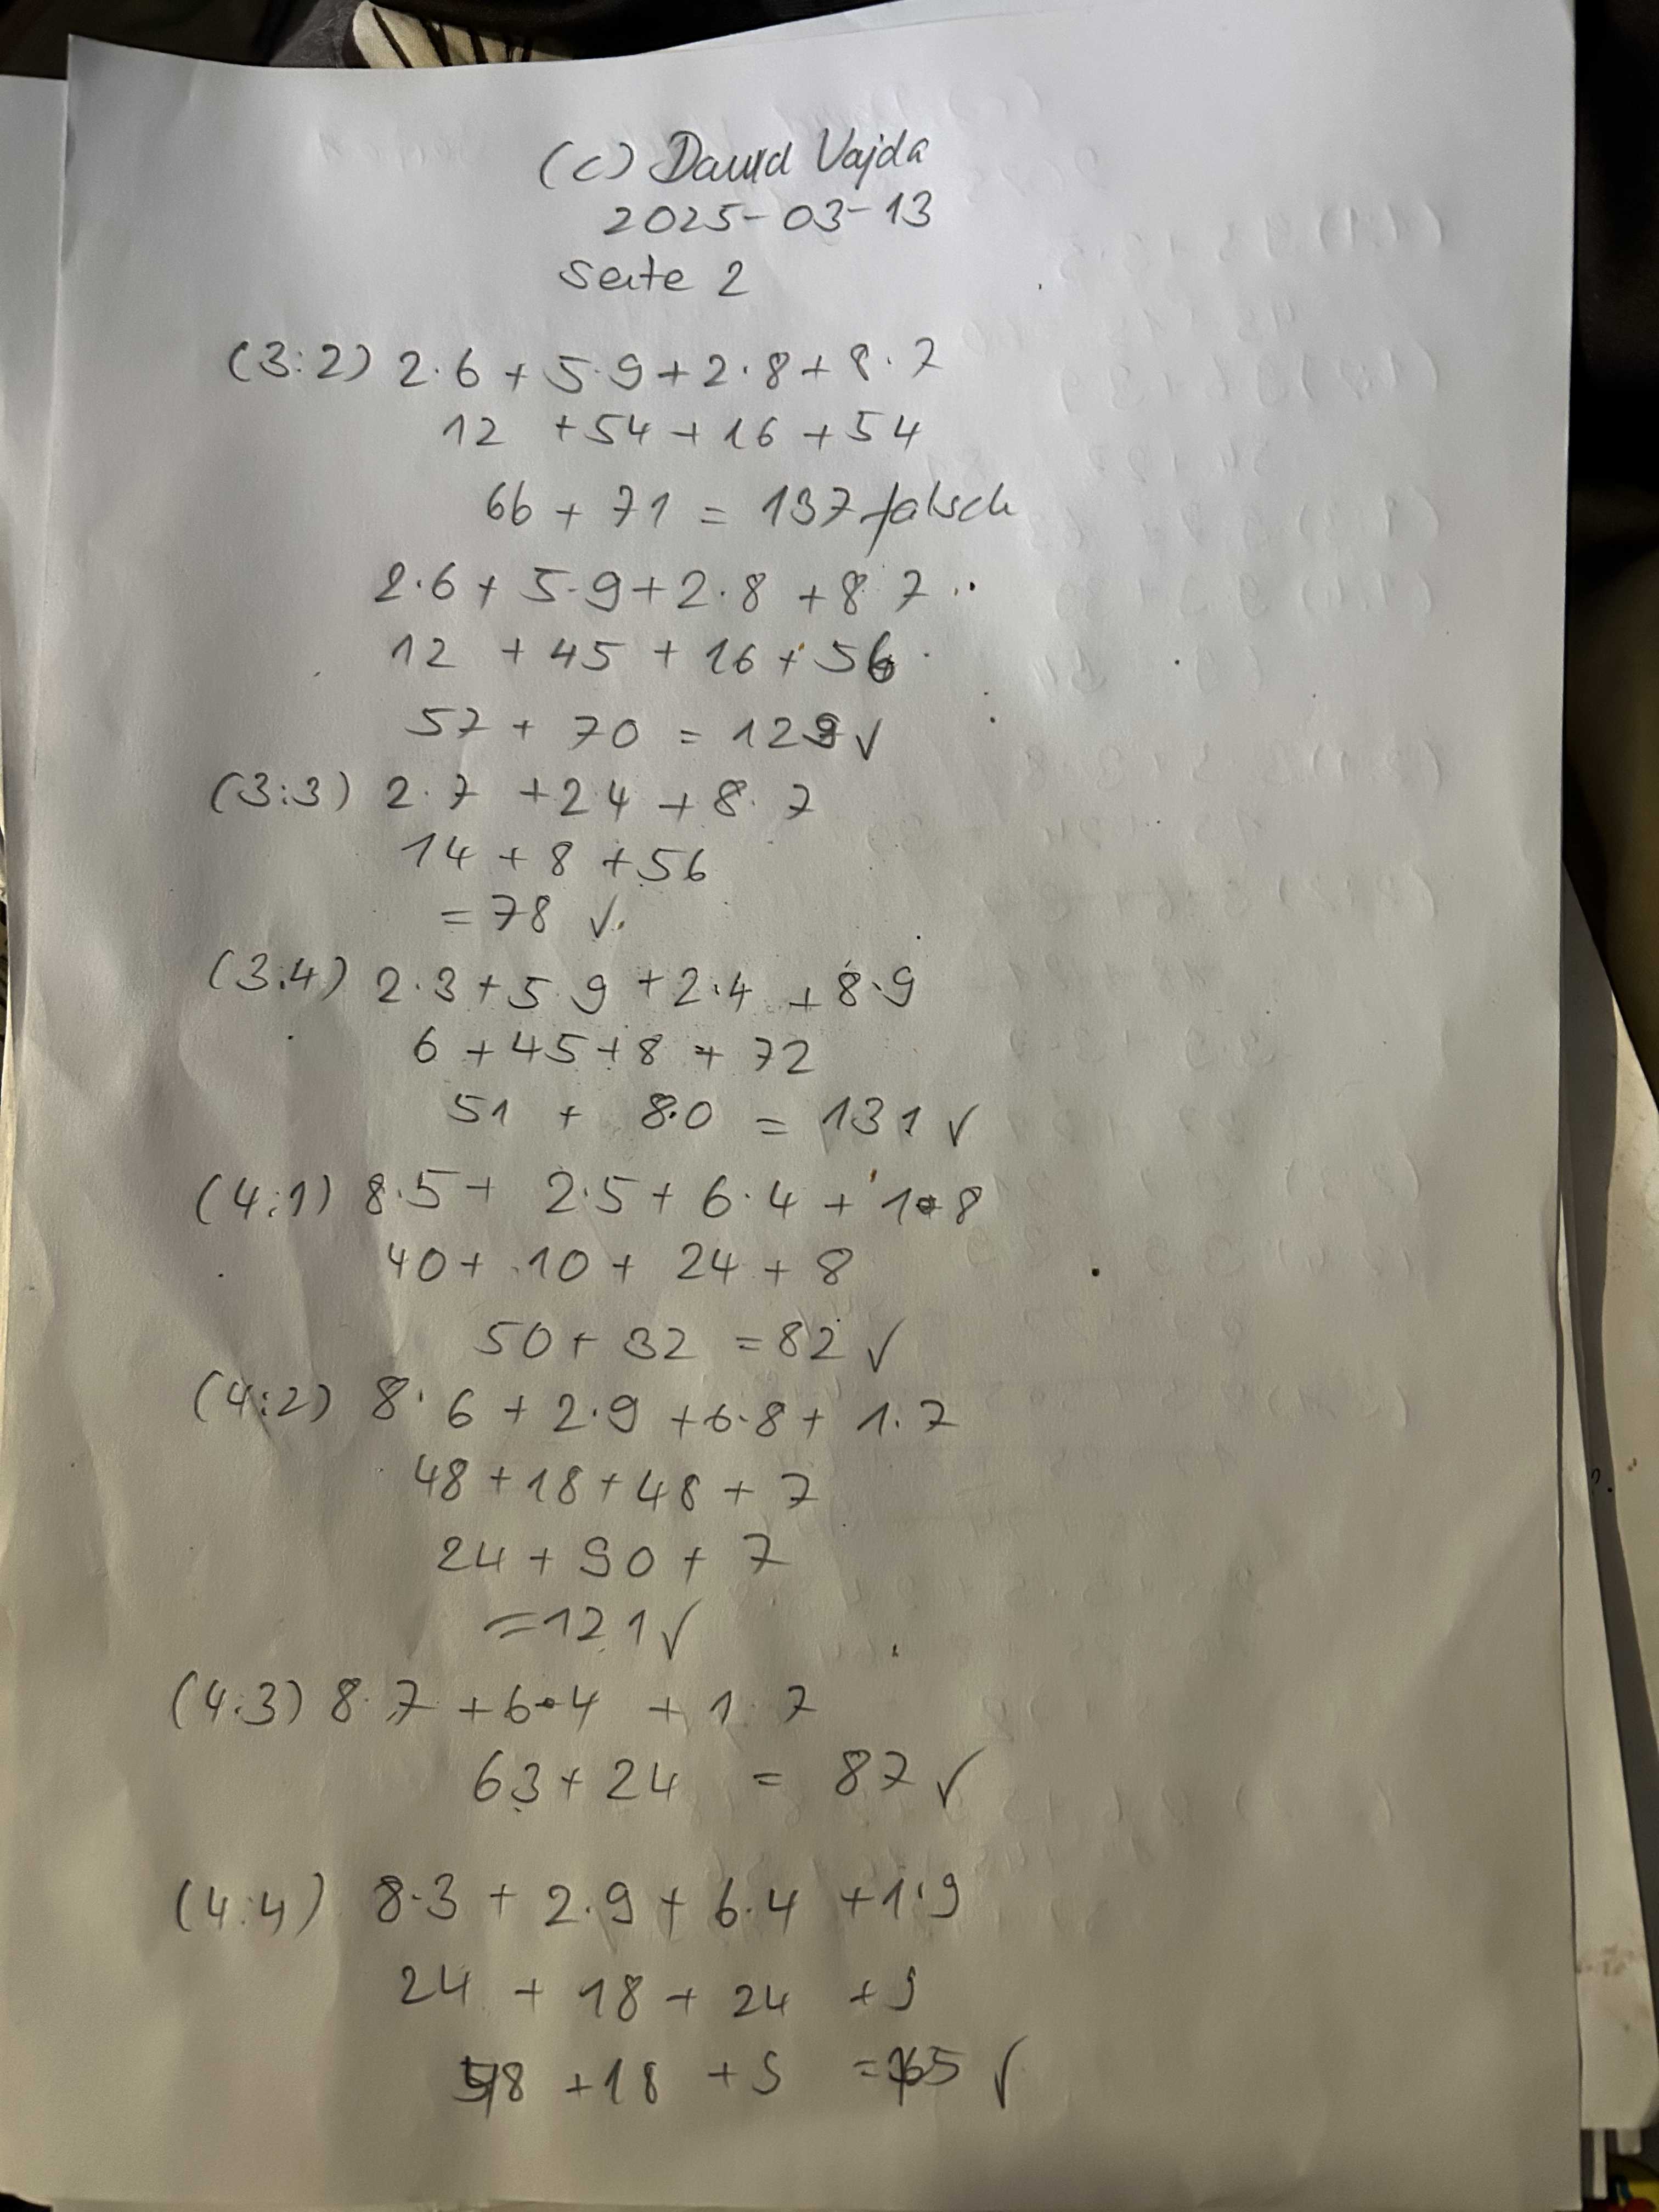 (c) David Vajda
2025-03-13
Seite 2
(3:2) 2·6 + 5·9 + 2·8 + 8·7
12 + 54 + 16 + 54
66 + 71 = 137 falsch
2·6 + 5·9 + 2·8 + 8 7
12 + 45 + 16 + 56
57 + 70 = 129 ✓
(3:3) 2·7 + 2 4 + 8·7
14 + 8 + 56
= 78 ✓
(3:4) 2·3 + 5 9 + 2·4 + 8·9
6 + 45 + 8 + 72
51 + 80 = 131 ✓
(4:1) 8·5 + 2·5 + 6·4 + 1·8
40 + 10 + 24 + 8
50 + 32 = 82 ✓
(4:2) 8·6 + 2·9 + 6·8 + 1·7
48 + 18 + 48 + 7
24 + 90 + 7
= 121 ✓
(4:3) 8·7 + 6·4 + 1 7
63 + 24 = 87 ✓
(4:4) 8·3 + 2·9 + 6·4 + 1·9
24 + 18 + 24 + 9
+ 18 + 9 ✓